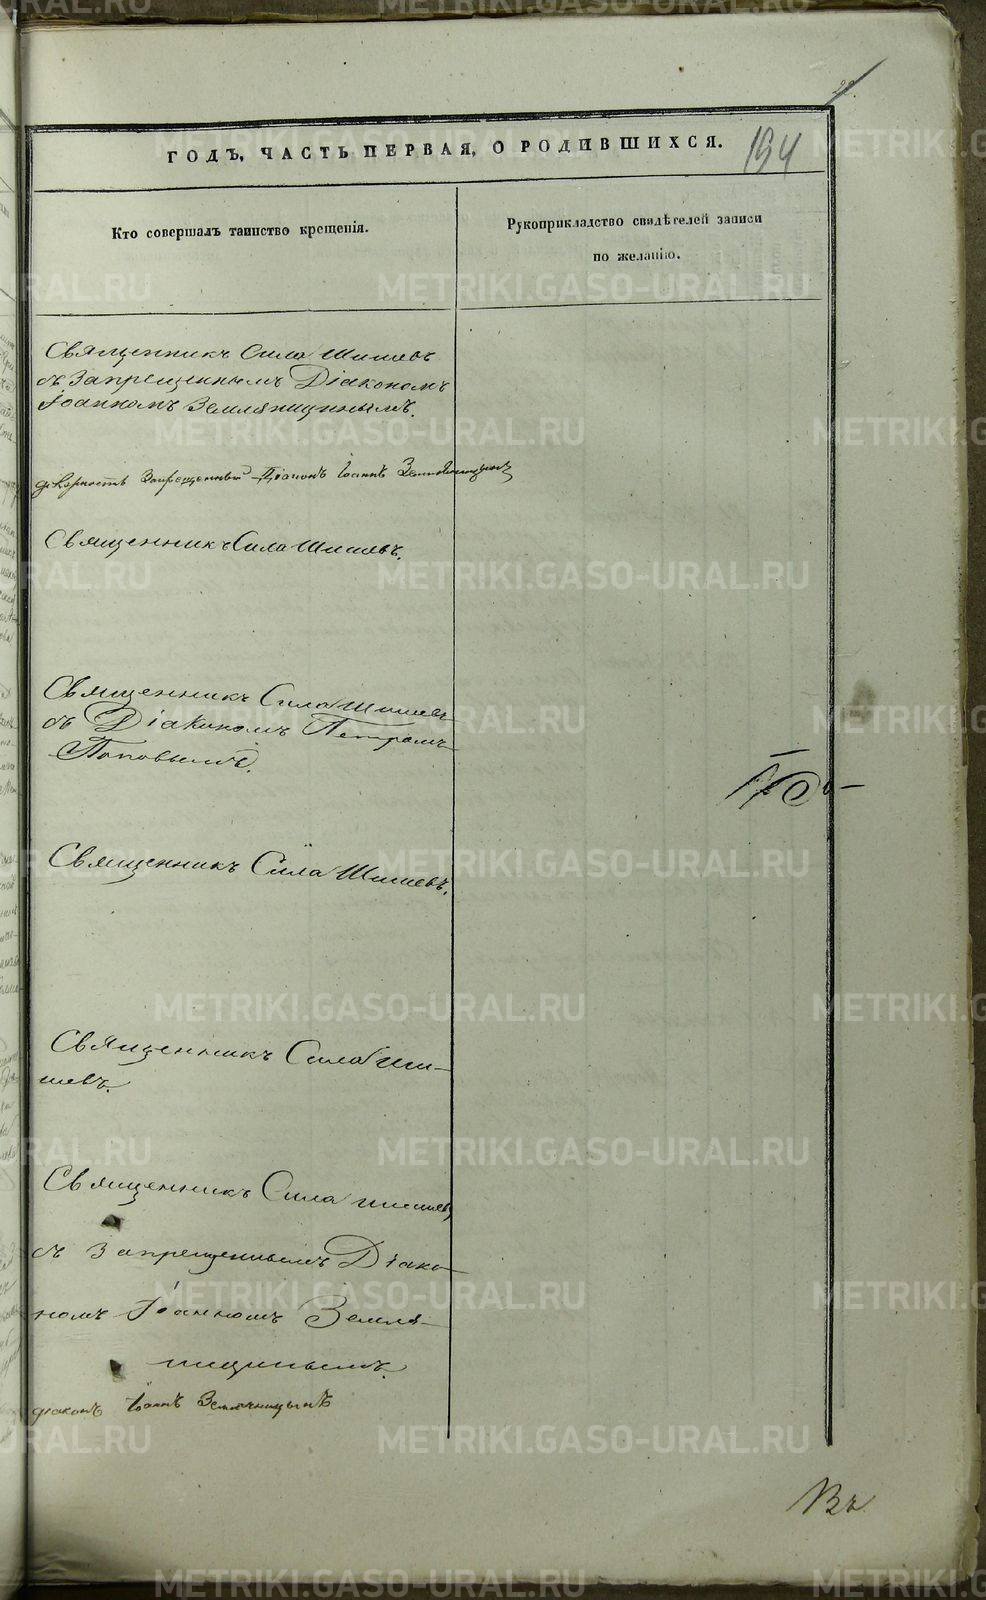 194
ГОДЪ, ЧАСТЬ ПЕРВАЯ, О РОДИВШИХСЯ.
Кто совершалъ таинство крещенія.
Рукоприкладство свидѣтелей записи
по желанію.
Священникъ Сила Шишевъ
съ Запрещеннымъ Діакономъ
Іоанномъ Земляницынымъ.
Запрещенный Діаконъ Іоаннъ Земляницынъ
Священникъ Сила Шишевъ.
Священникъ Сила Шишевъ
съ Діакономъ Петромъ
Поповымъ.
Священникъ Сила Шишевъ.
Священникъ Сила Ши-
шевъ.
Священникъ Сила Шишевъ
съ Запрещеннымъ Діако-
номъ Іоанномъ Земля-
ницынымъ.
діаконъ Іоаннъ Земляницынъ
METRIKI.GASO-URAL.RU